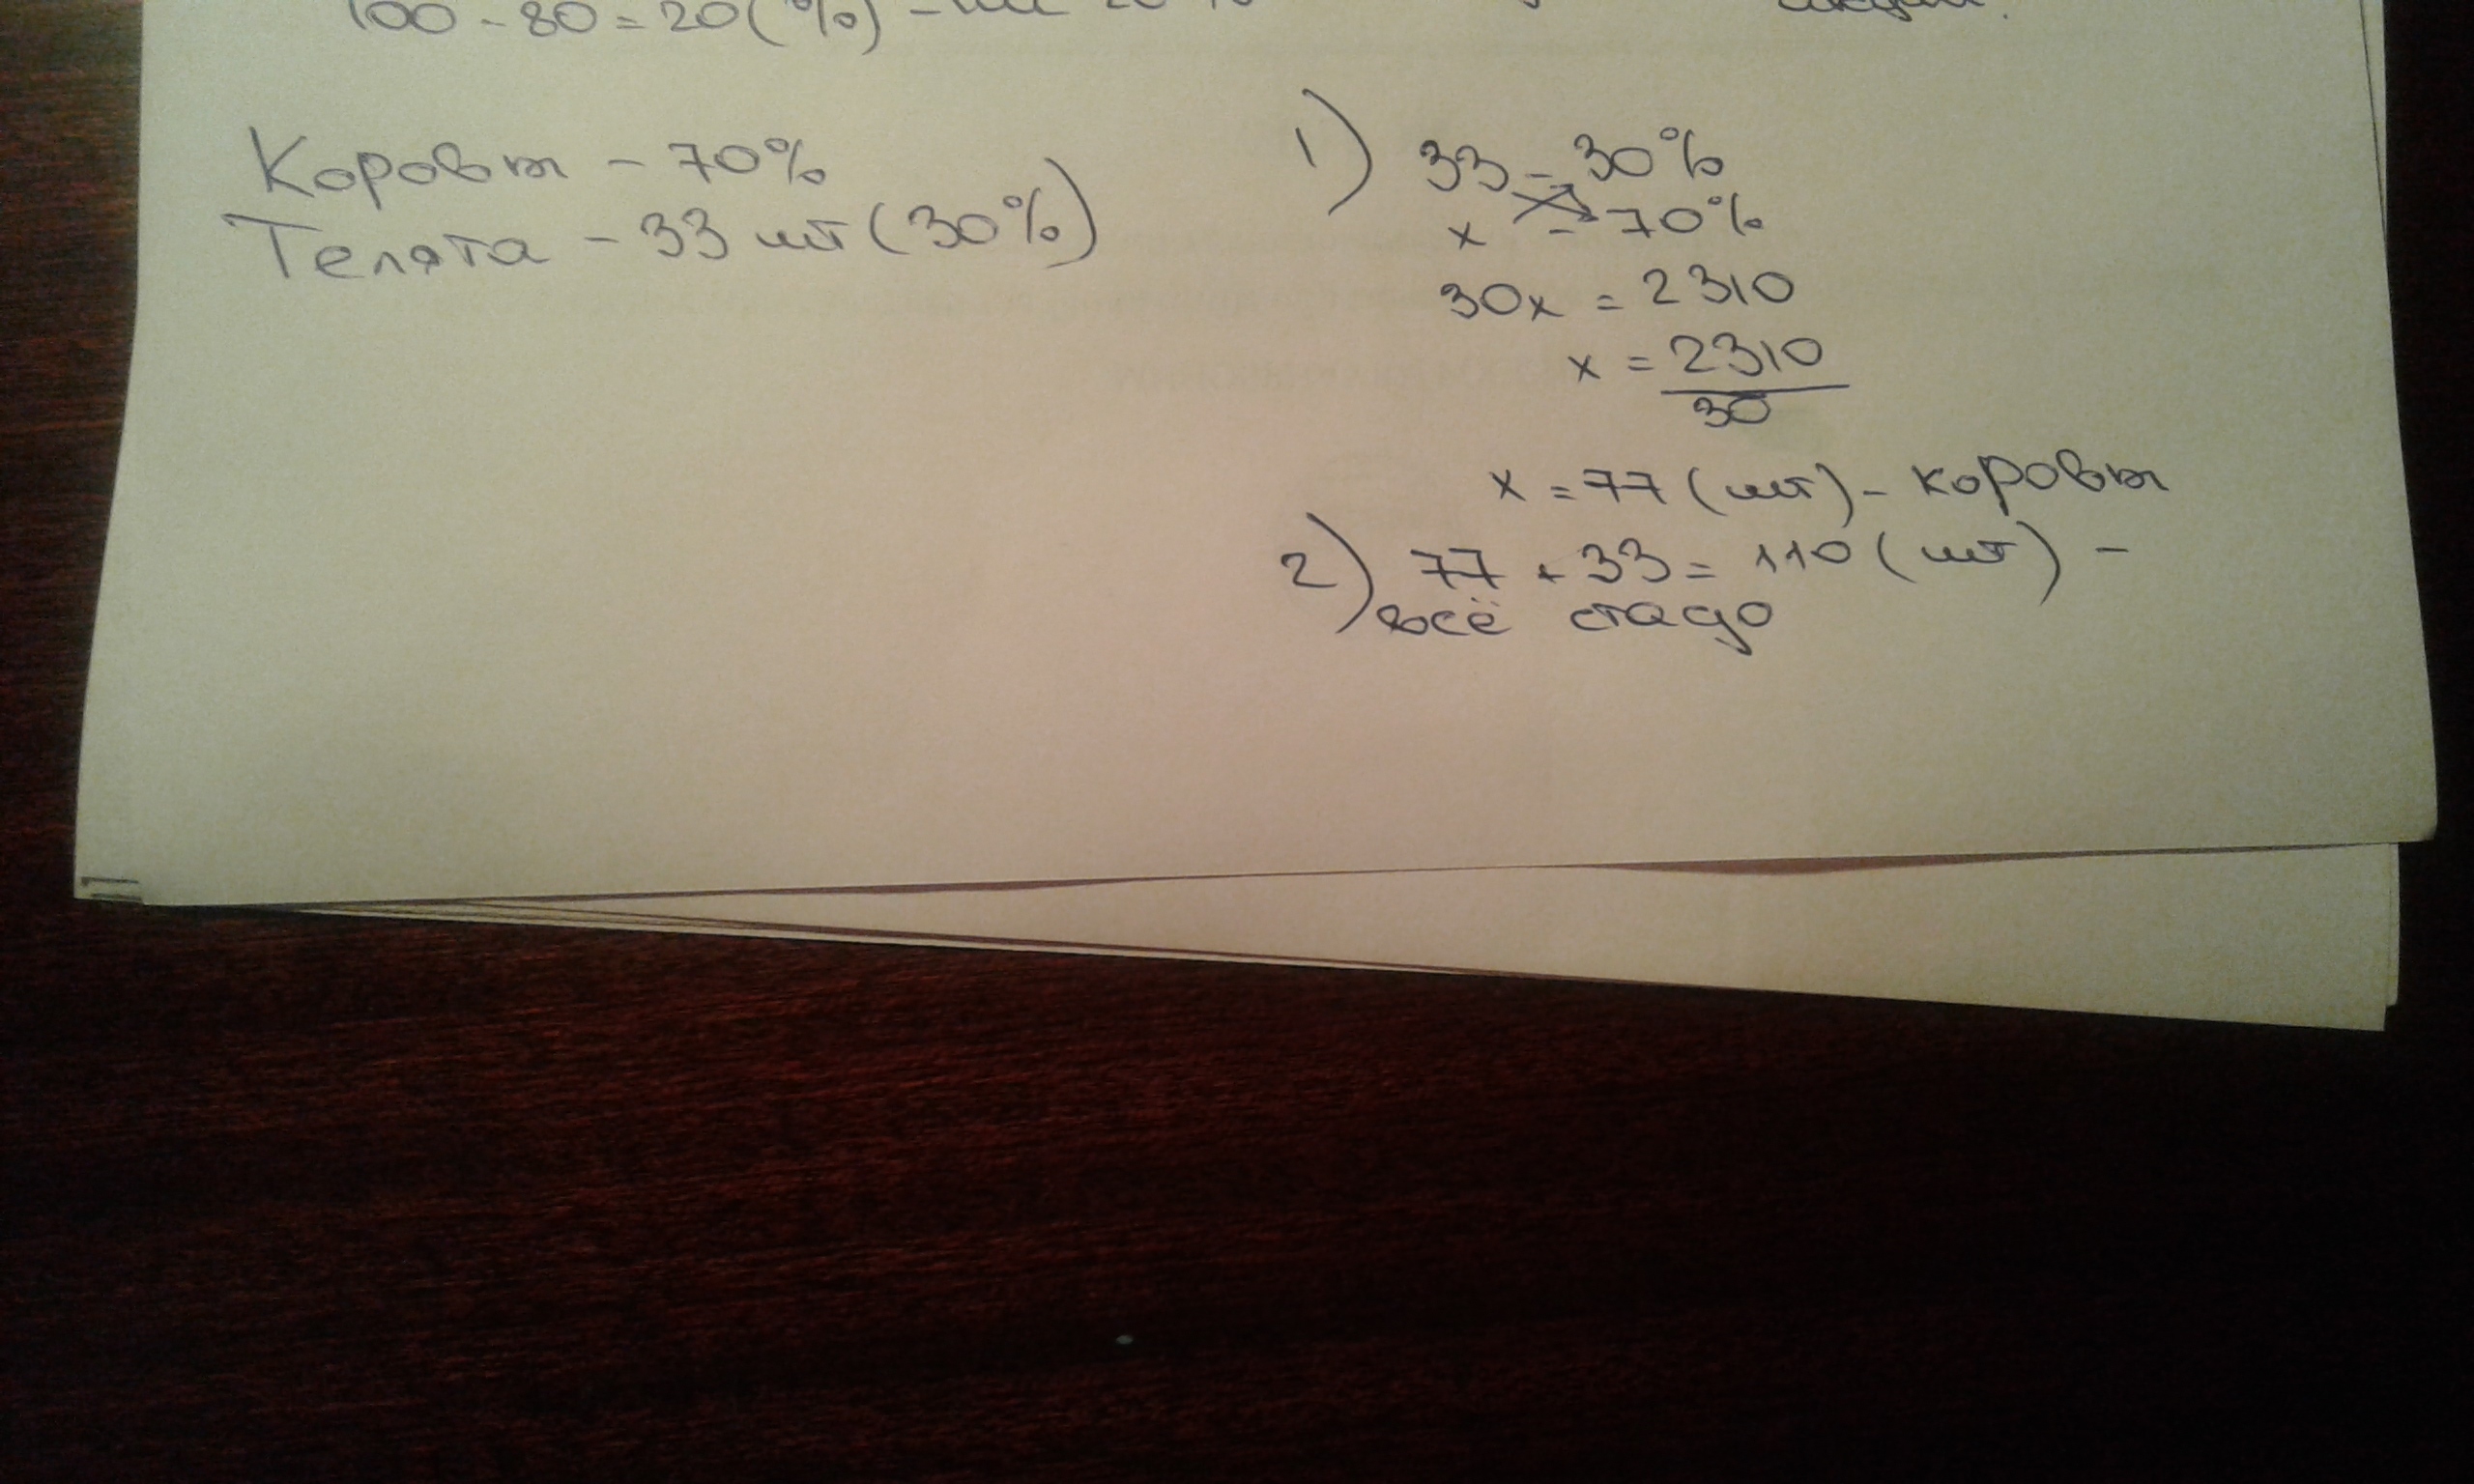 100 - 80 = 20 (%) -
Коровы - 70%
Телята - 33 шт (30%)
1) 33 - 30%
x - 70%
30x = 2310
x = 2310
30
x = 77 (шт) - коровы
2) 77 + 33 = 110 (шт) -
всё стадо